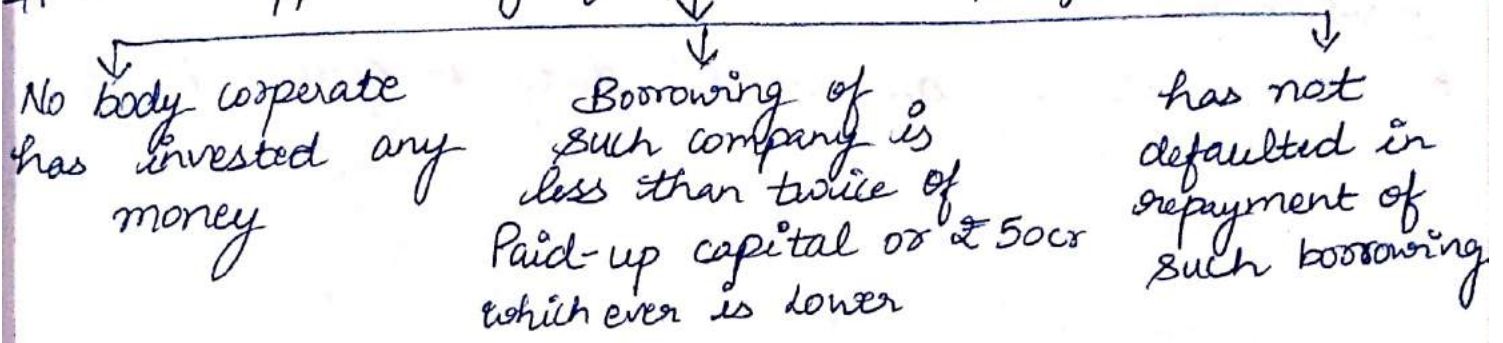 No body corperate
has invested any
money
Borrowing of
such company is
less than twice of
Paid-up capital or ₹ 50cr
which ever is Lower
has not
defaulted in
repayment of
such borrowing